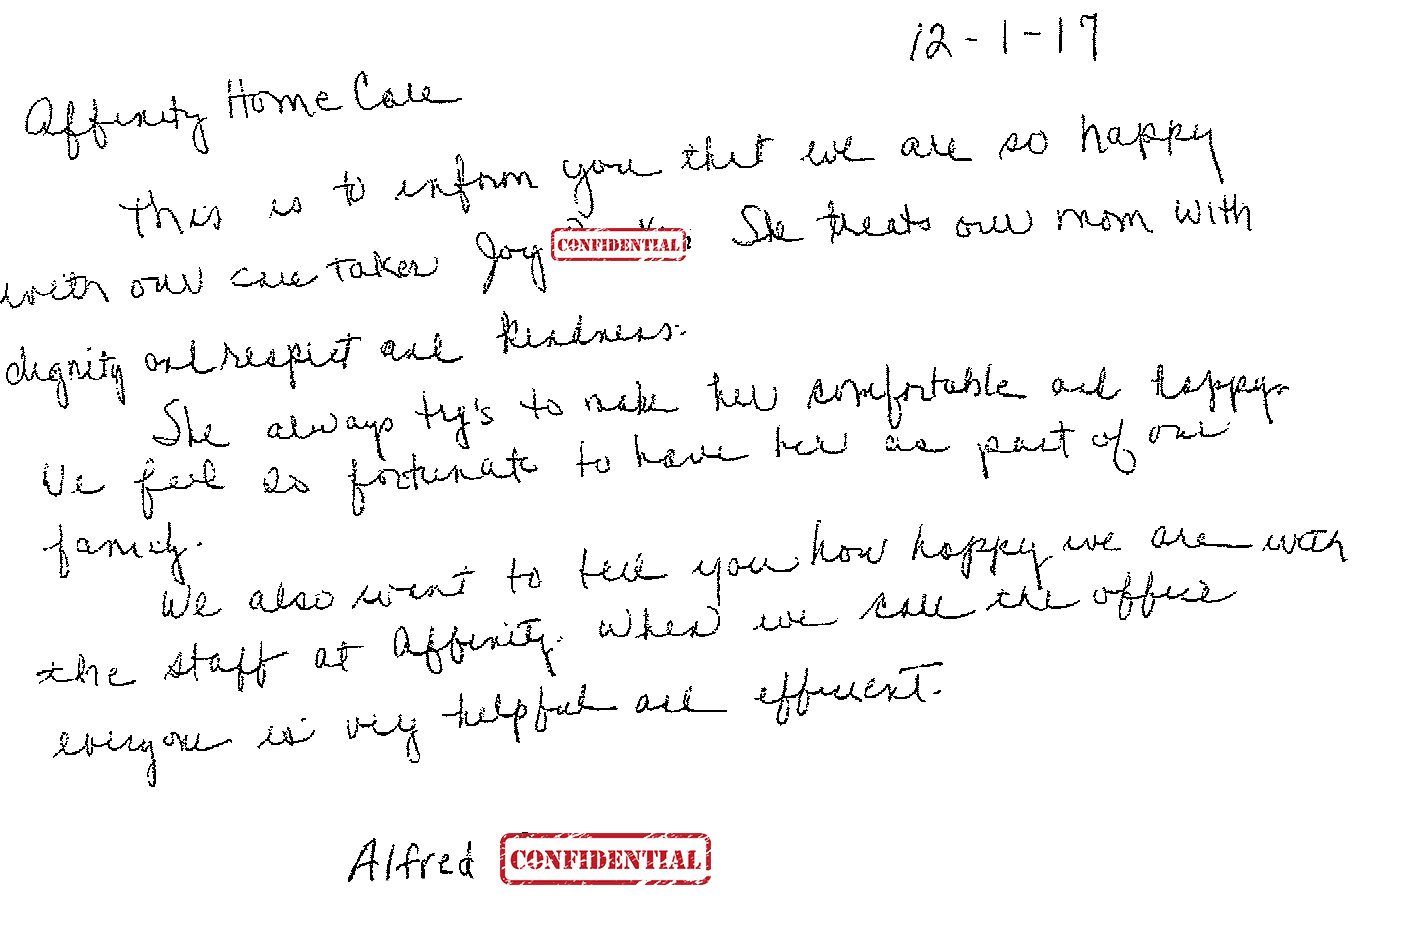 12-1-17
Affinity Home Care
This is to inform you that we are so happy
with our care taker Joy CONFIDENTIAL She treats our mom with
dignity and respect and kindness.
She always try's to make her comfortable and happy.
We feel so fortunate to have her as part of our
family.
We also want to tell you how happy we are with
the staff at Affinity. When we call the office
everyone is very helpful and efficient.
Alfred CONFIDENTIAL